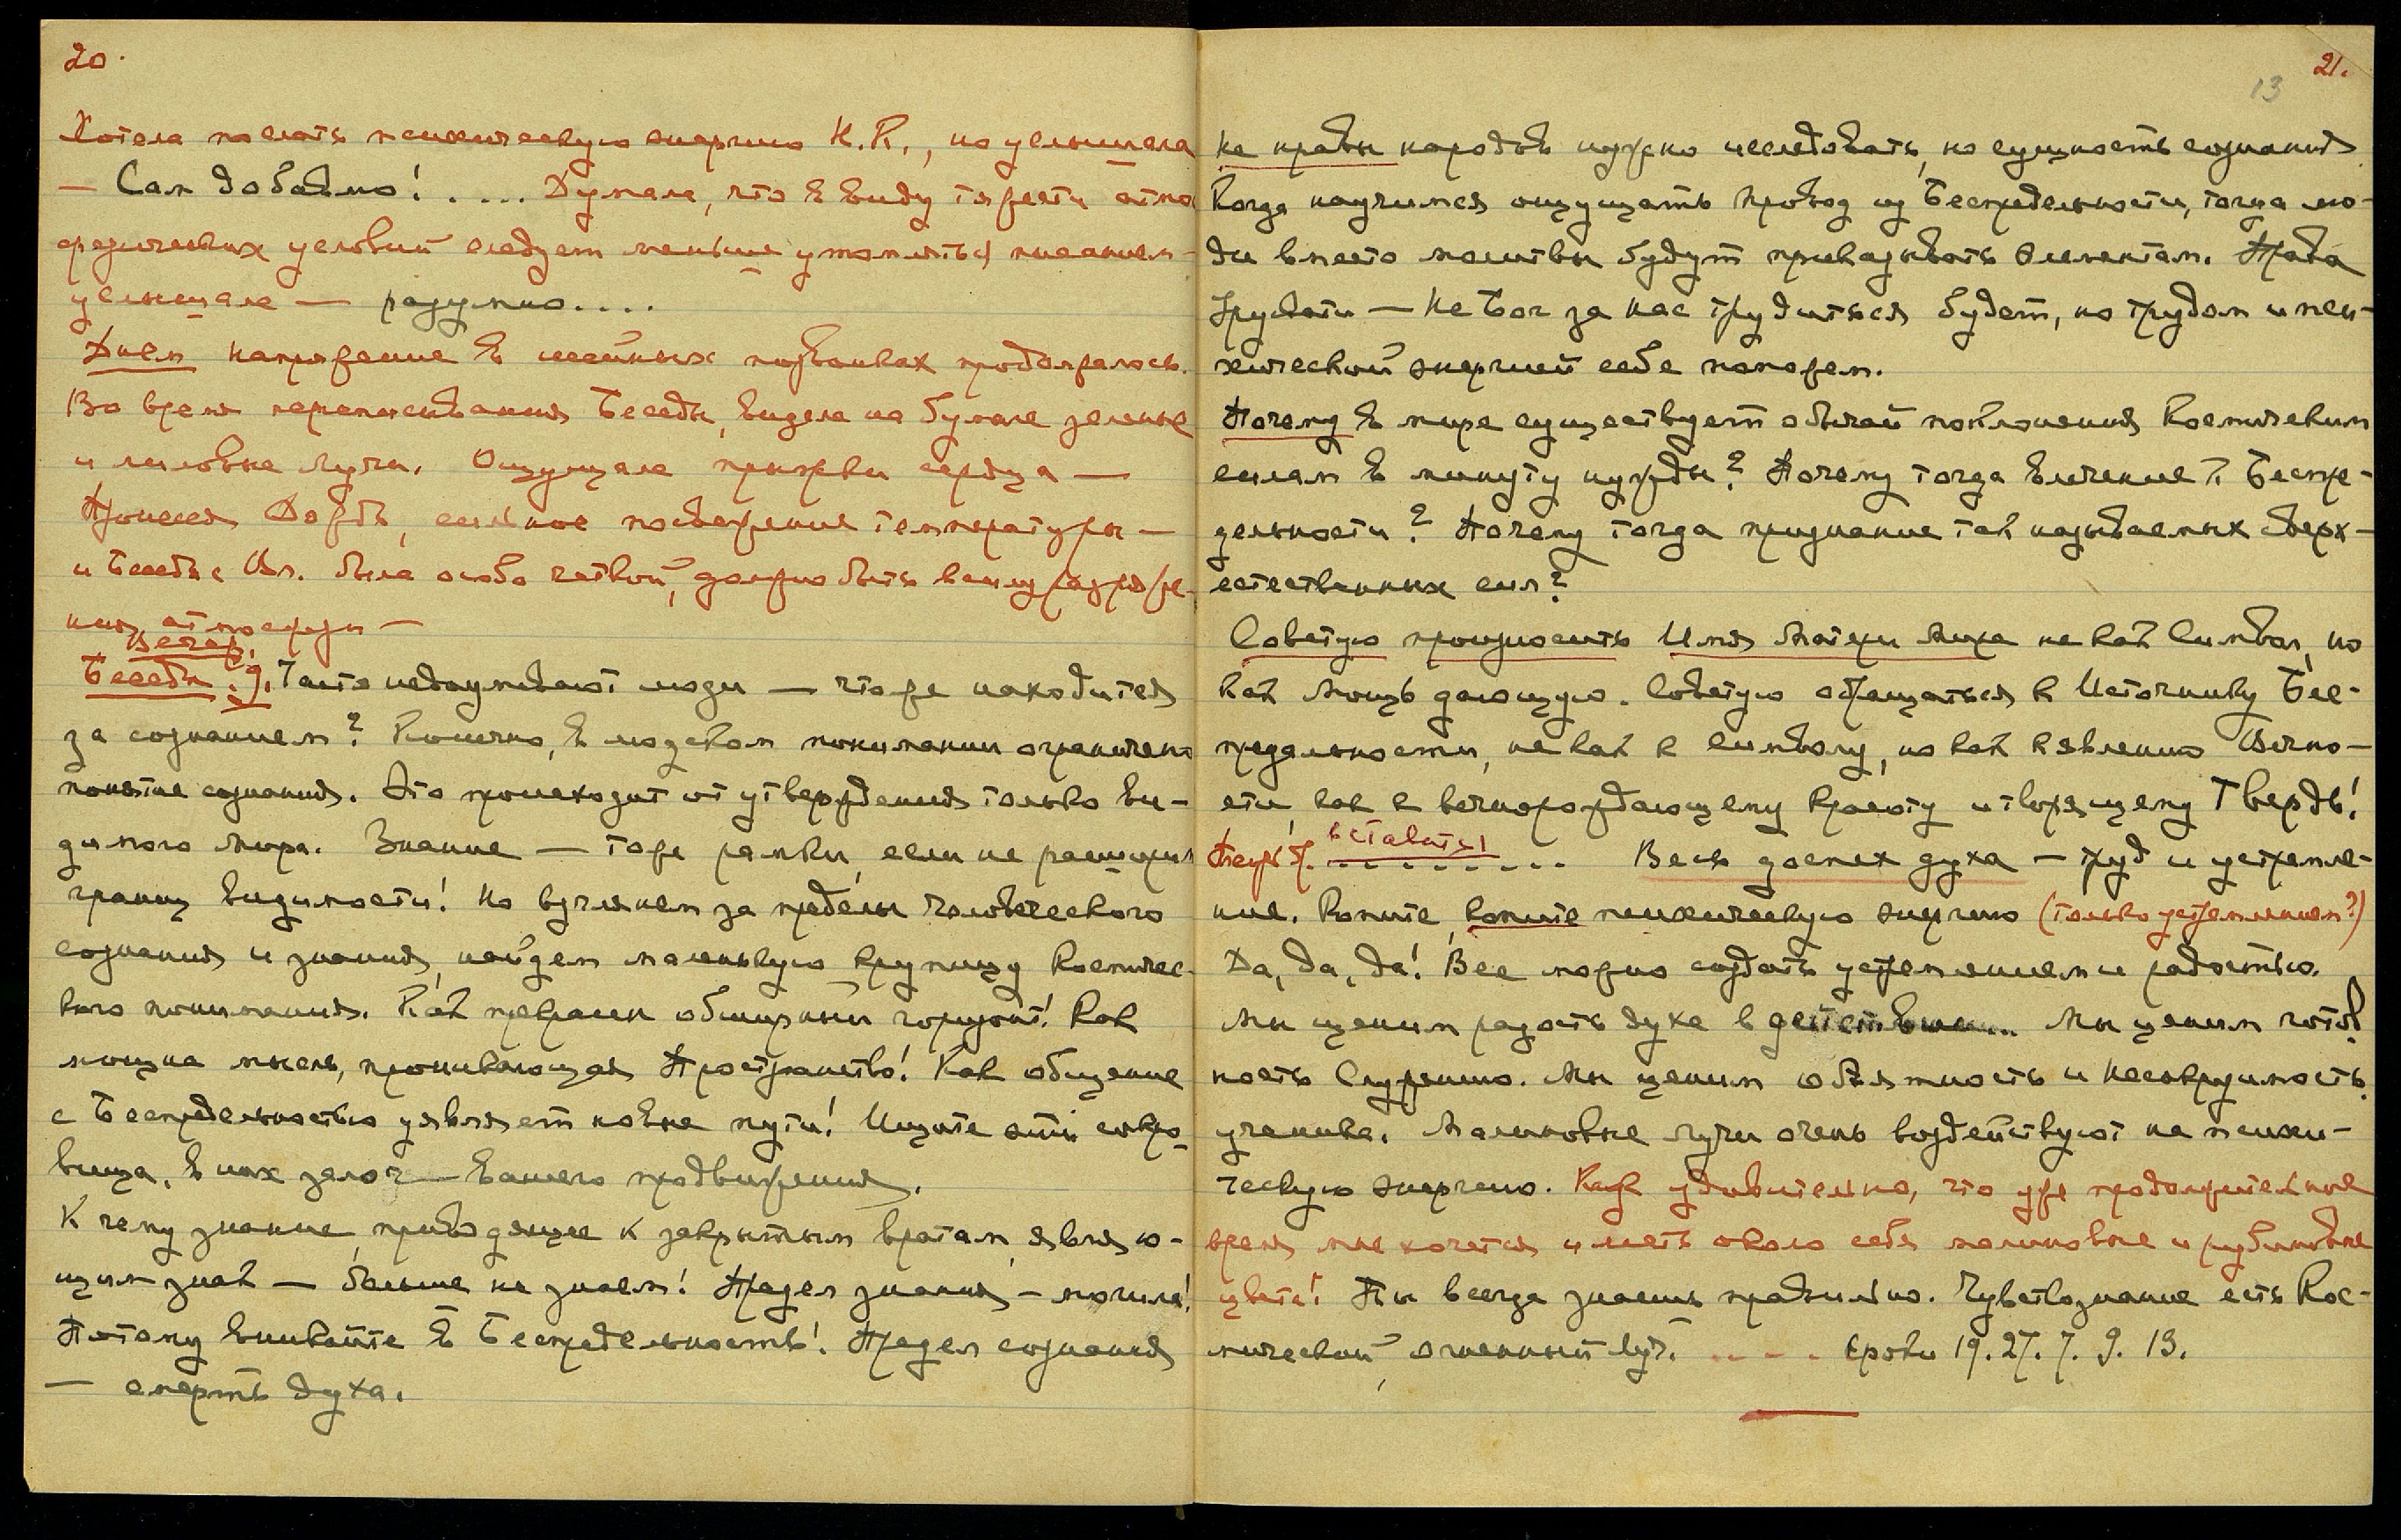 20.
Хотела послать психическую энергию Н.К., но услышала
— Сам добавлю! . . . . . Думала, что в виду тяжести атмо
сферических условий следует меньше утомляться писанием-
услышала — разумно....
Днем напряжение в шейных позвонках продолжалось.
Во время переписывания Беседы, видела на бумаге зеленые
и лиловые лучи. Ощущала прыжки сердца —
Пронесся Фордъ, сильное повышение температуры —
и Беседа с Вл. была особо четкой, должно быть в силу разряже-
ния атмосферы —
Вечер.
Беседа. 9. Часто недоумевают люди — что же находится
за сознанием? Конечно, в людском понимании ограничено
понятие сознания. Это происходит от утверждения только ви-
димого мира. Знание — тоже рамки, если не расширим
границ видимости! Но взглянем за пределы человеческого
сознания и знания, найдем маленькую крупицу Космичес-
кого понимания. Как прекрасен обширный горизонт! Как
мощна мысль, проникающая Пространство! Как общение
с Беспредельностью уявляет новые пути! Ищите эти сокро-
вища, в них залог — вашего продвижения.
К чему знание, приводящее к закрытым вратам, являю-
щим знак — больше не знаем! Предел знания — могила!
Потому вникайте в Беспредельность! Предел сознания
— смерть духа.
21.
13
Не нравы народов нужно исследовать, но сущность сознания
Когда научимся ощущать провод из Беспредельности, тогда лю-
ди вместо молитвы будут приказывать Элементам. Права
Урусвати — Не Бог за нас трудиться будет, но трудом и пси-
хической энергией себе поможем.
Почему в мире существует обычай поклонения Космическим
силам в минуту нужды? Почему тогда влечение к Беспре-
дельности? Почему тогда признание так называемых сверх-
естественных сил?
Советую произносить Имя Матери Мира не как символ, но
как мощь дающую. Советую обращаться к Источнику Бес-
предельности, не как к символу, но как к явлению Вечно-
сти, как к вечнорождающему Красоту и творящему Твердь!
вставить
. . . . . . . . . Весь доспех духа — труд и устремле-
ние. Копите, копите психическую энергию (только устремлением?)
Да, да, да! Все можно создать устремлением и радостью.
Мы ценим радость духа в действии... Мы ценим готов-
ность Служению. Мы ценим объятность и несокрушимость
ученика. Малиновые лучи очень воздействуют на психи-
ческую энергию. Как удивительно, что уже продолжительное
время мне хочется иметь около себя малиновые и рубиновые
цвета! Ты всегда знаешь правильно. Чувствознание есть Кос-
мический, огненный луч. . . . . Сроки 19. 27. 7. 9. 13.